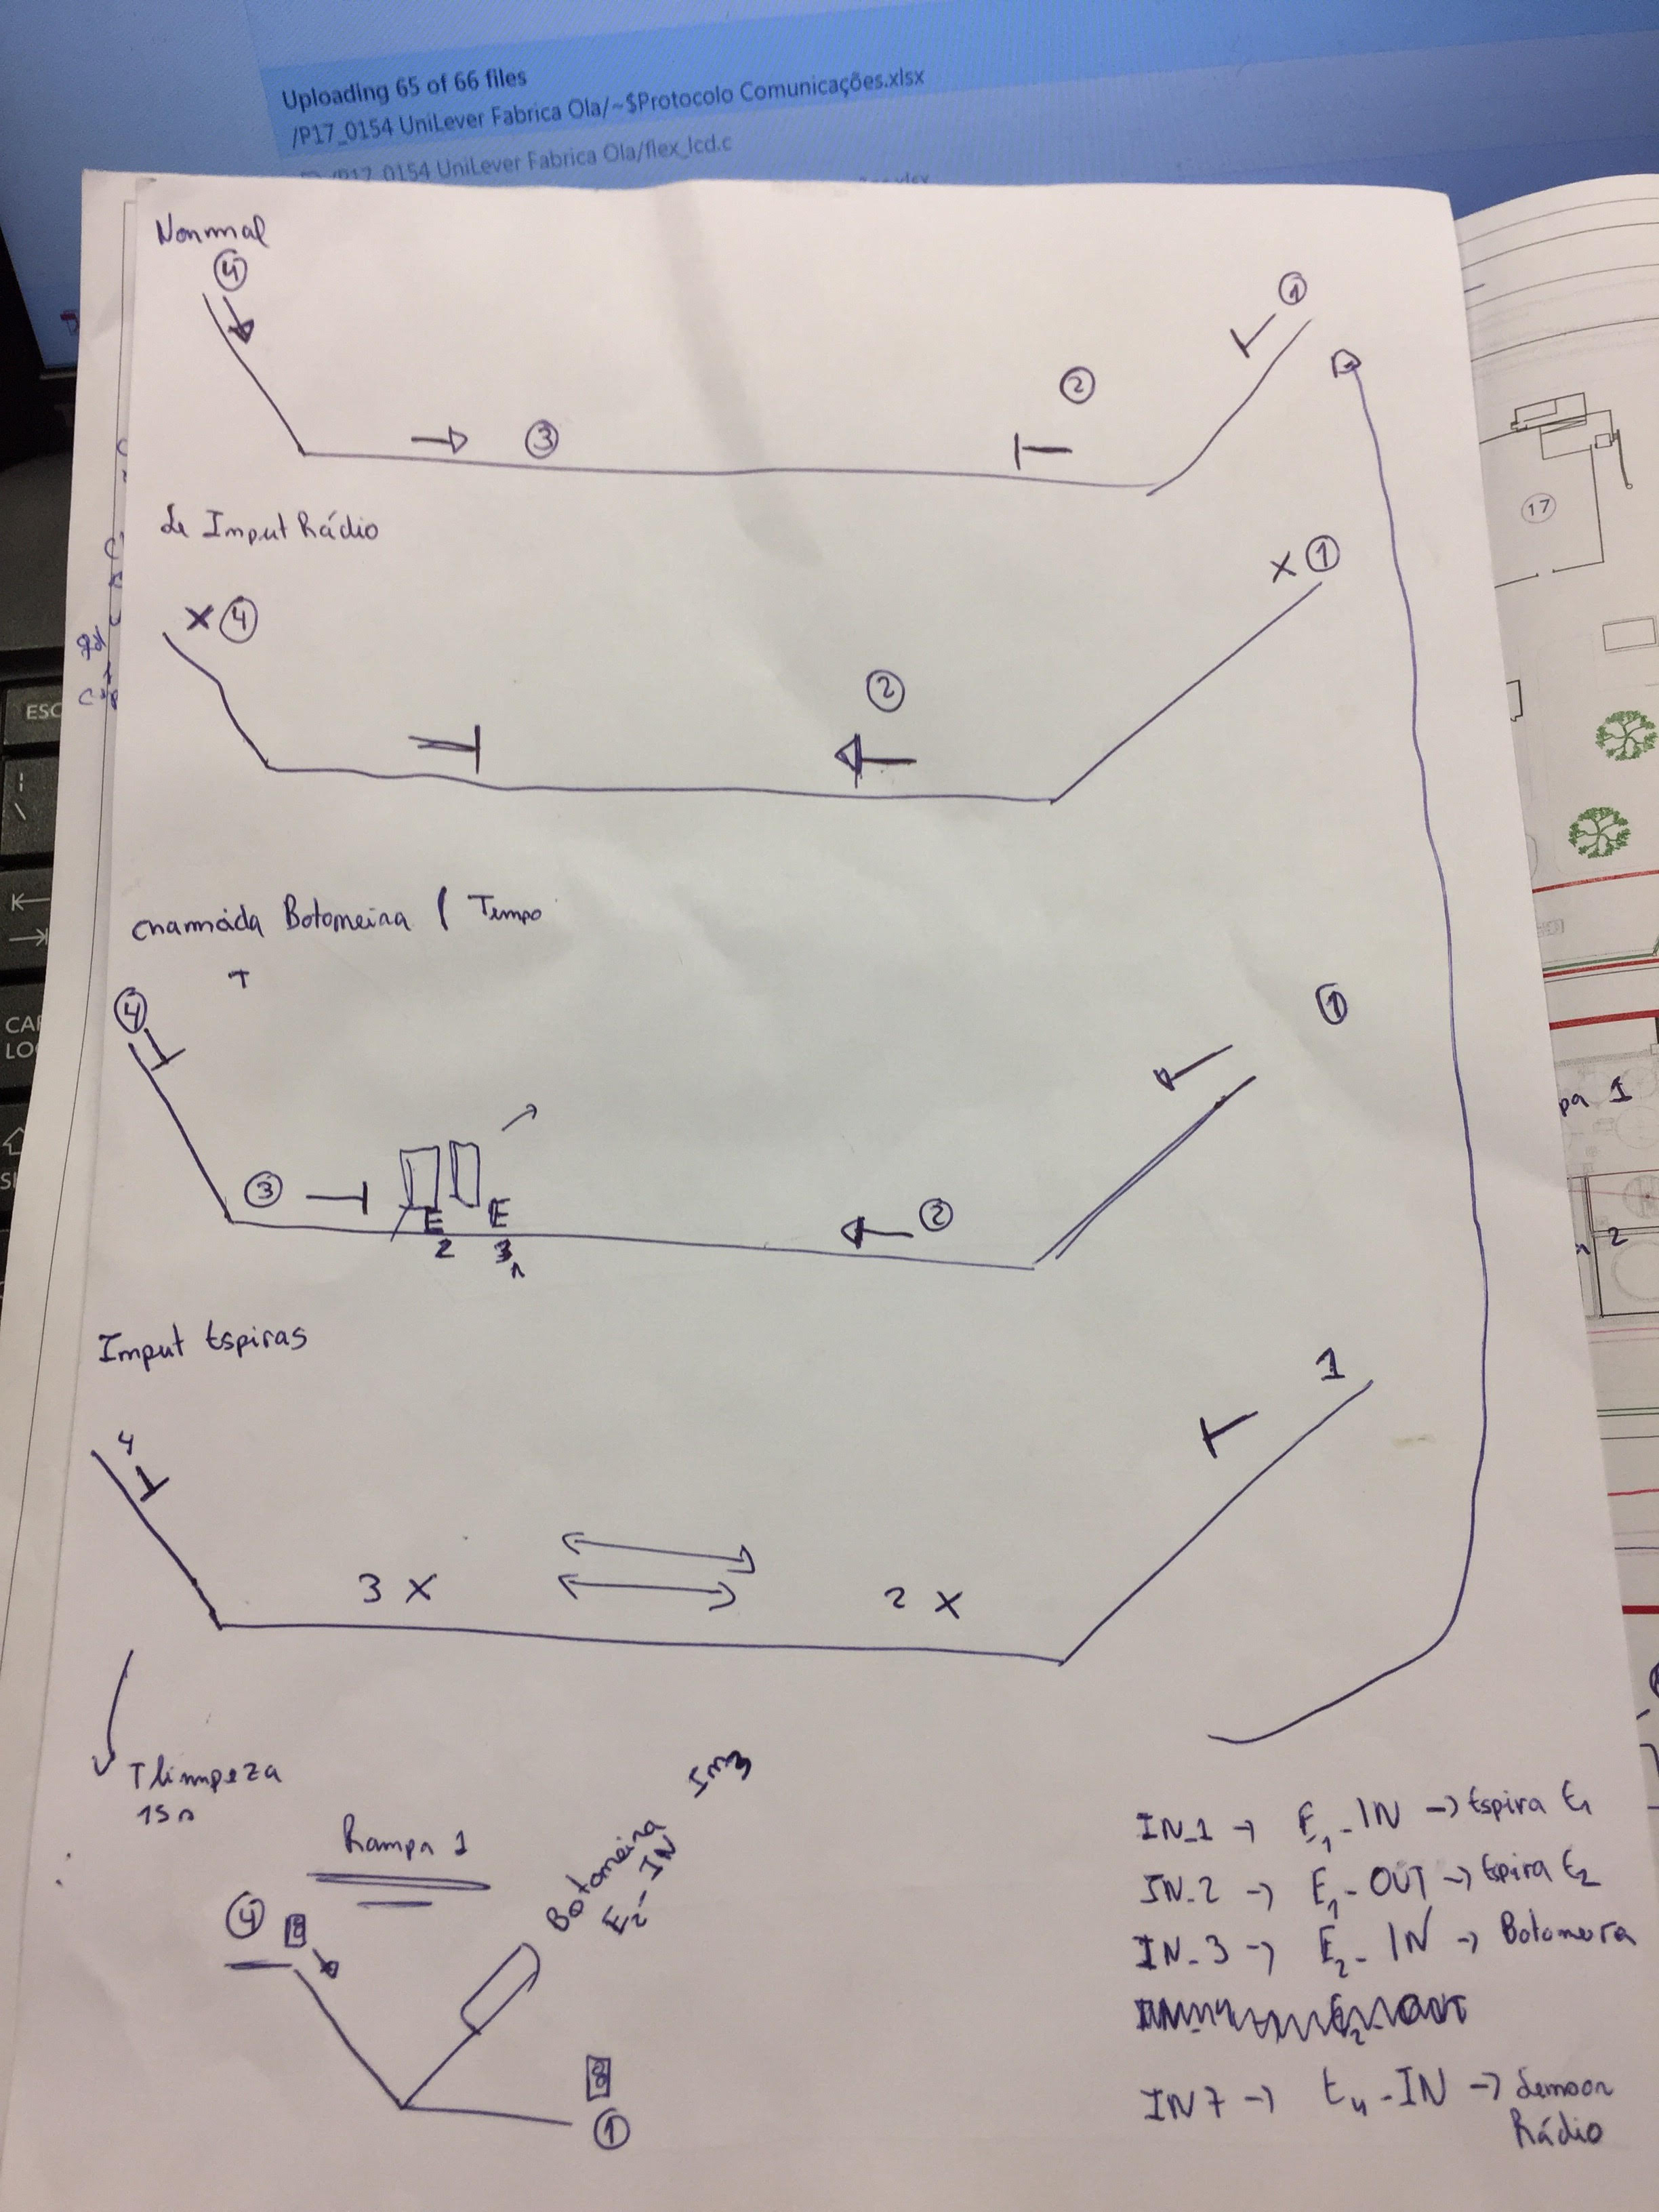 Uploading 65 of 66 files
/P17_0154 UniLever Fabrica Ola/~$Protocolo Comunicações.xlsx
/P17_0154 UniLever Fabrica Ola/flex_lcd.c
Normal
4
1
2
3
de Input Rádio
X 4
X 1
2
17
ESC
Chamada Botoneira / Tempo
T
4
1
3
E
2
E
3
2
pa 1
2
Input Espiras
1
4
3 X
2 X
T limpeza
15s
Rampa 1
4
Botoneira In3
E2-IN
1
IN_1 → E1-IN → Espira E1
IN_2 → E1-OUT → Espira E2
IN_3 → E2-IN → Botoneira
IN7 → E4-IN → Sensor
Rádio